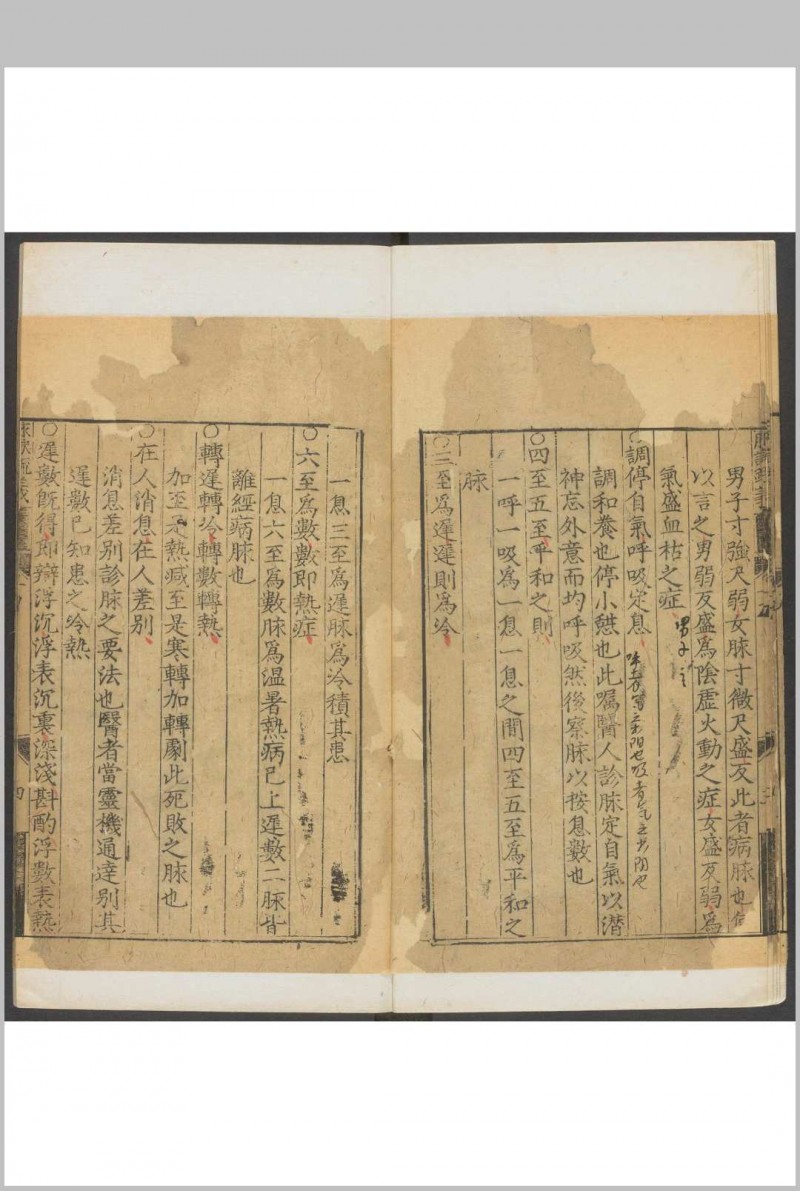 男子寸強尺弱女脉寸微尺盛反此者病脉也
以言之男弱反盛爲陰虛火動之症女盛反弱爲
氣盛血枯之症 男子
○調停自氣呼吸定息
調和養也停小憇也此嘱醫人診脉定自氣以潛
神忘外意而均呼吸然後察脉以按息數也
○四至五至平和之則
一呼一吸爲一息一息之間四至五至爲平和之
脉
○三至爲遲遲則爲冷
一息三至爲遲脉爲冷積其患
○六至爲數數即熱症
一息六至爲數脉爲温暑熱病已上遲數二脉皆
離經病脉也
○轉遲轉冷轉數轉熱
加至是熱減至是寒轉加轉劇此死敗之脉也
○在人消息在人差別
消息差別診脉之要法也醫者當靈機通達別其
遲數已知患之冷熱
○遲數旣得即辯浮沉浮表沉裏深淺斟酌浮數表熱
四